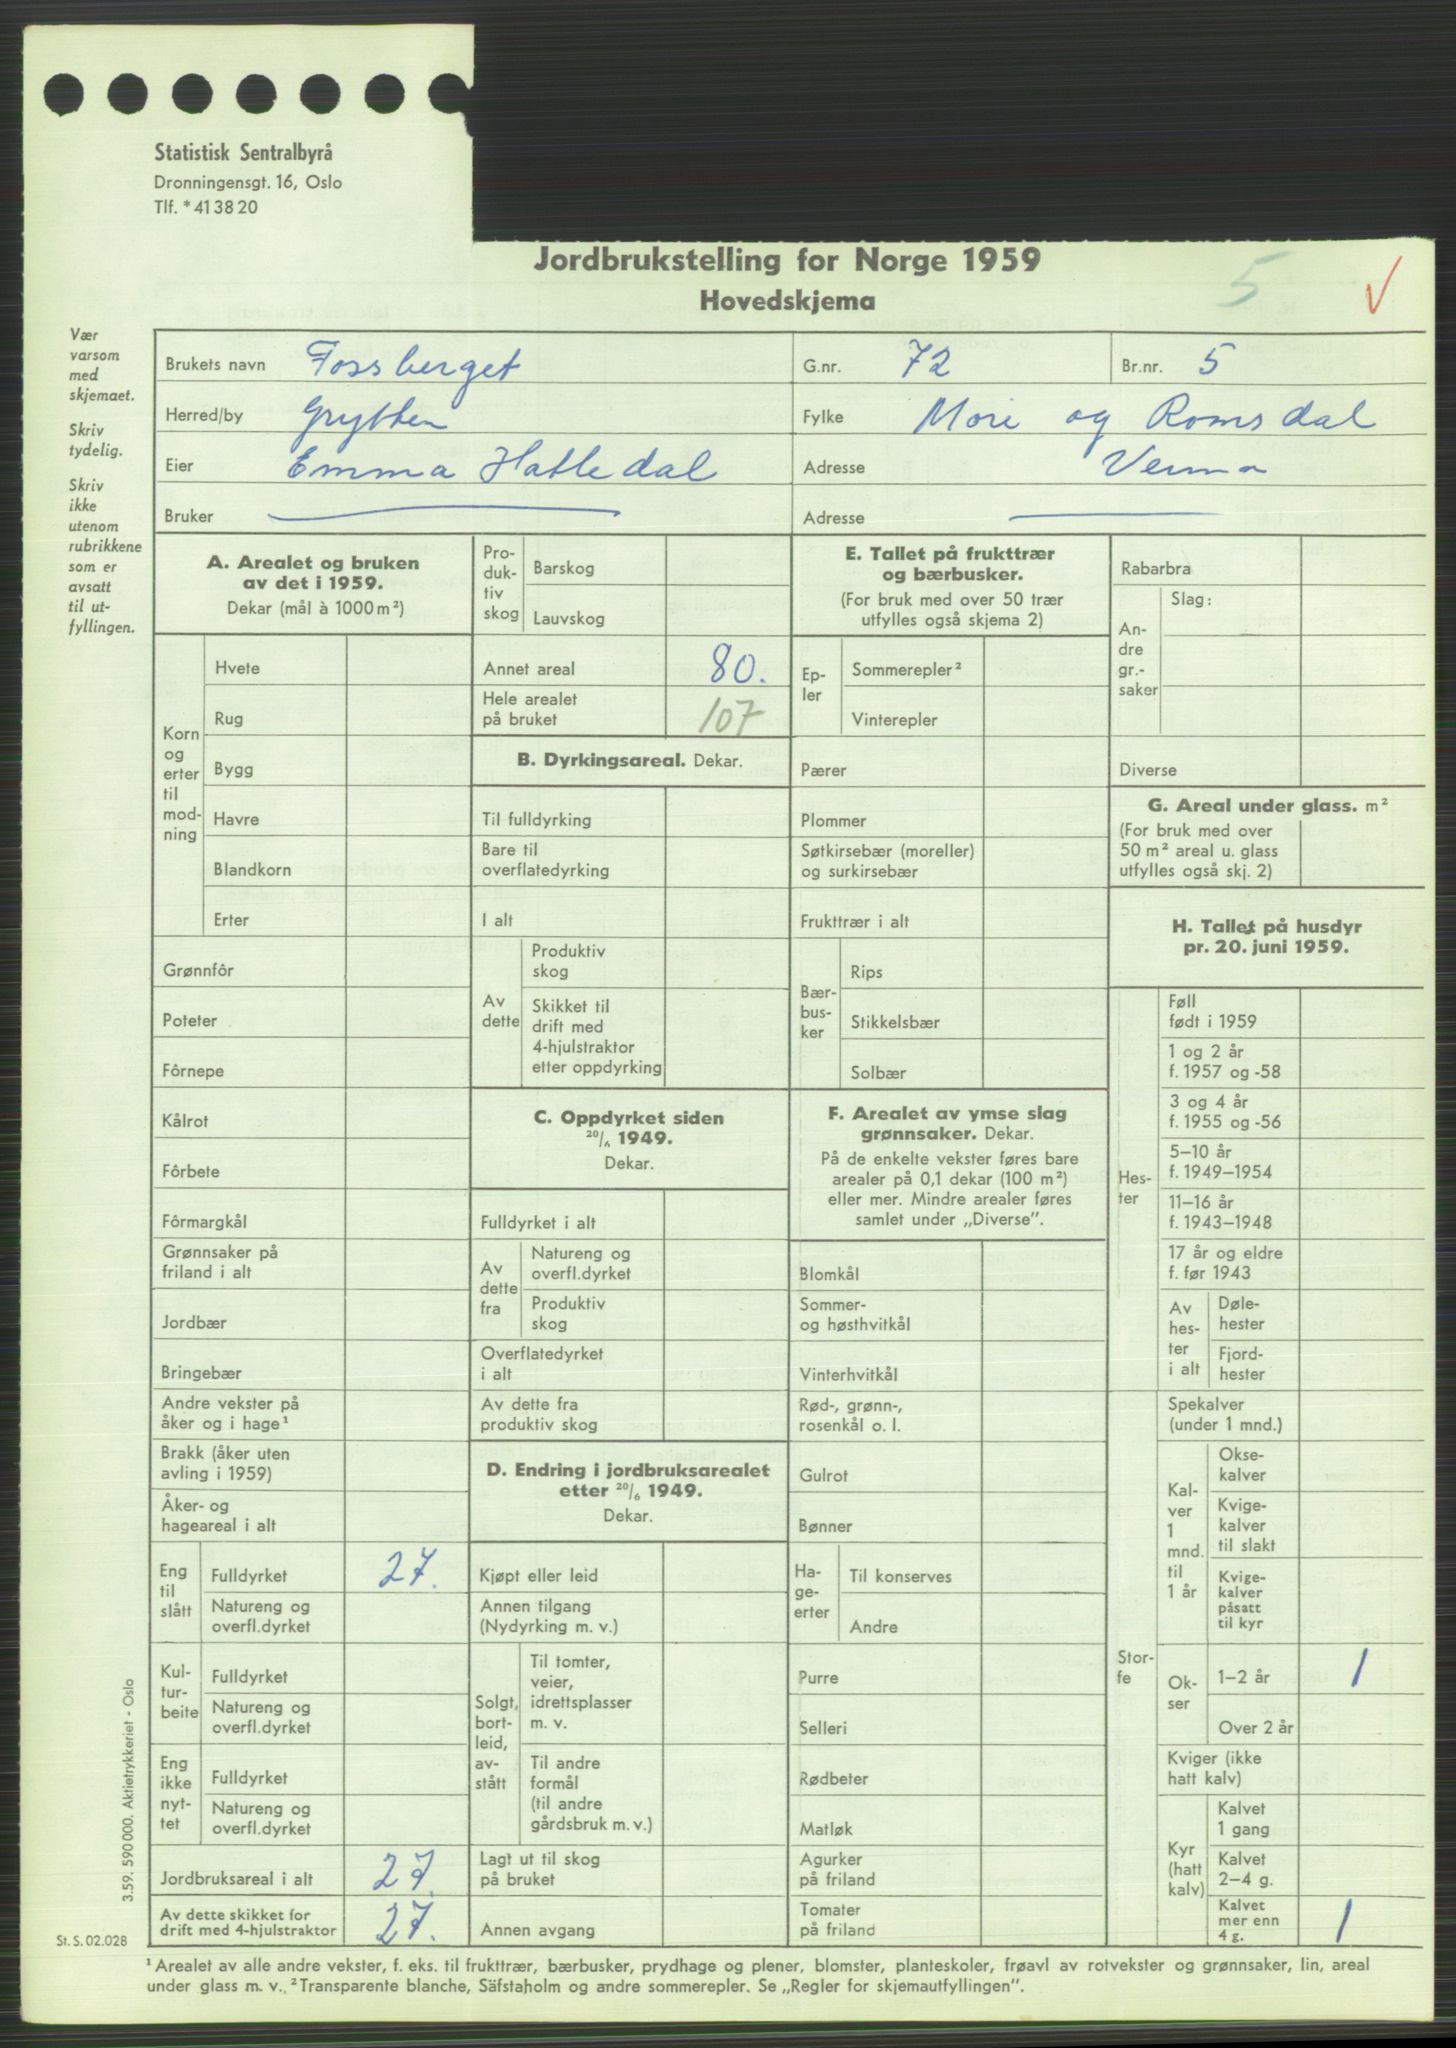 Statistisk Sentralbyrå
Dronningensgt. 16, Oslo
Tlf. *41 38 20
Jordbrukstelling for Norge 1959
Hovedskjema
5
Vær
varsom
med
skjemaet.
Skriv
tydelig.
Skriv
ikke
utenom
rubrikkene
som er
avsatt
til ut-
fyllingen.
Brukets navn Fossberget
G.nr. 72
Br.nr. 5
Herred/by Grytten
Fylke Møre og Romsdal
Eier Emma Hatledal
Adresse Verma
Bruker
Adresse
A. Arealet og bruken
av det i 1959.
Dekar (mål à 1000 m²)
Korn
og
erter
til
mod-
ning
Hvete
Rug
Bygg
Havre
Blandkorn
Erter
Grønnfôr
Poteter
Fôrnepe
Kålrot
Fôrbete
Fôrmargkål
Grønnsaker på
friland i alt
Jordbær
Bringebær
Andre vekster på
åker og i hage¹
Brakk (åker uten
avling i 1959)
Åker- og
hageareal i alt
Eng
til
slått
Fulldyrket 27.
Natureng og
overfl.dyrket
Kul-
tur-
beite
Fulldyrket
Natureng og
overfl.dyrket
Eng
ikke
nyt-
tet
Fulldyrket
Natureng og
overfl.dyrket
Jordbruksareal i alt 27.
Av dette skikket for
drift med 4-hjulstraktor 27.
Pro-
duk-
tiv
skog
Barskog
Lauvskog
Annet areal 80.
Hele arealet
på bruket 107
B. Dyrkingsareal. Dekar.
Til fulldyrking
Bare til
overflatedyrking
I alt
Av
dette
Produktiv
skog
Skikket til
drift med
4-hjulstraktor
etter oppdyrking
C. Oppdyrket siden
20/6 1949.
Dekar.
Fulldyrket i alt
Av
dette
fra
Natureng og
overfl.dyrket
Produktiv
skog
Overflatedyrket
i alt
Av dette fra
produktiv skog
D. Endring i jordbruksarealet
etter 20/6 1949.
Dekar.
Kjøpt eller leid
Annen tilgang
(Nydyrking m. v.)
Solgt,
bort-
leid,
av-
stått
Til tomter,
veier,
idrettsplasser
m. v.
Til andre
formål
(til andre
gårdsbruk m. v.)
Lagt ut til skog
på bruket
Annen avgang
E. Tallet på frukttrær
og bærbusker.
(For bruk med over 50 trær
utfylles også skjema 2)
Ep-
ler
Sommerepler²
Vinterepler
Pærer
Plommer
Søtkirsebær (moreller)
og surkirsebær
Frukttrær i alt
Bær-
bus-
ker
Rips
Stikkelsbær
Solbær
F. Arealet av ymse slag
grønnsaker. Dekar.
På de enkelte vekster føres bare
arealer på 0,1 dekar (100 m²)
eller mer. Mindre arealer føres
samlet under „Diverse”.
Blomkål
Sommer-
og høsthvitkål
Vinterhvitkål
Rød-, grønn-,
rosenkål o. l.
Gulrot
Bønner
Ha-
ge-
erter
Til konserves
Andre
Purre
Selleri
Rødbeter
Matløk
Agurker
på friland
Tomater
på friland
Rabarbra
An-
dre
gr.-
saker
Slag:
Diverse
G. Areal under glass. m²
(For bruk med over
50 m² areal u. glass
utfylles også skj. 2)
H. Tallet på husdyr
pr. 20. juni 1959.
Hes-
ter
Føll
født i 1959
1 og 2 år
f. 1957 og -58
3 og 4 år
f. 1955 og -56
5–10 år
f. 1949–1954
11–16 år
f. 1943–1948
17 år og eldre
f. før 1943
Av
hes-
ter
i alt
Døle-
hester
Fjord-
hester
Stor-
fe
Spekalver
(under 1 mnd.)
Kal-
ver
1
mnd.
til
1 år
Okse-
kalver
Kvige-
kalver
til slakt
Kvige-
kalver
påsatt
til kyr
Ok-
ser
1–2 år 1
Over 2 år
Kviger (ikke
hatt kalv)
Kyr
(hatt
kalv)
Kalvet
1 gang
Kalvet
2–4 g.
Kalvet
mer enn
4 g. 1
3.59. 590 000. Aktietrykkeriet - Oslo
St. S. 02.028
¹ Arealet av alle andre vekster, f. eks. til frukttrær, bærbusker, prydhage og plener, blomster, planteskoler, frøavl av rotvekster og grønnsaker, lin, areal
under glass m. v. ² Transparente blanche, Säfstaholm og andre sommerepler. Se „Regler for skjemautfyllingen”.